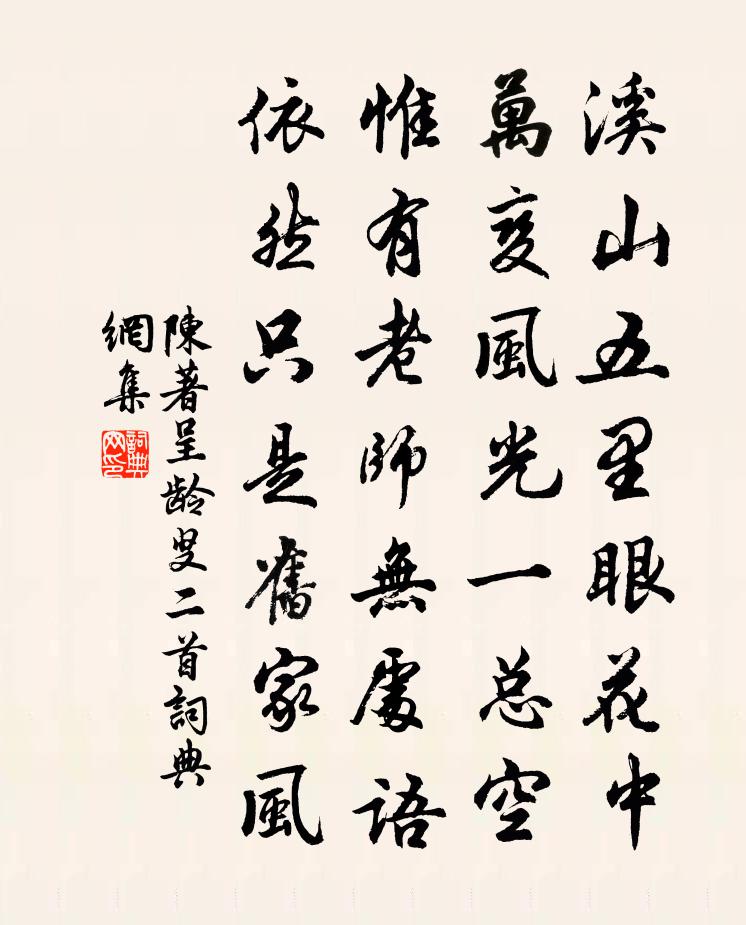 溪山五里眼花中
萬变風光一总空
惟有老師無處語
依然只是舊家風
陳著呈龄叟二首詞典
網集
詞典
网印